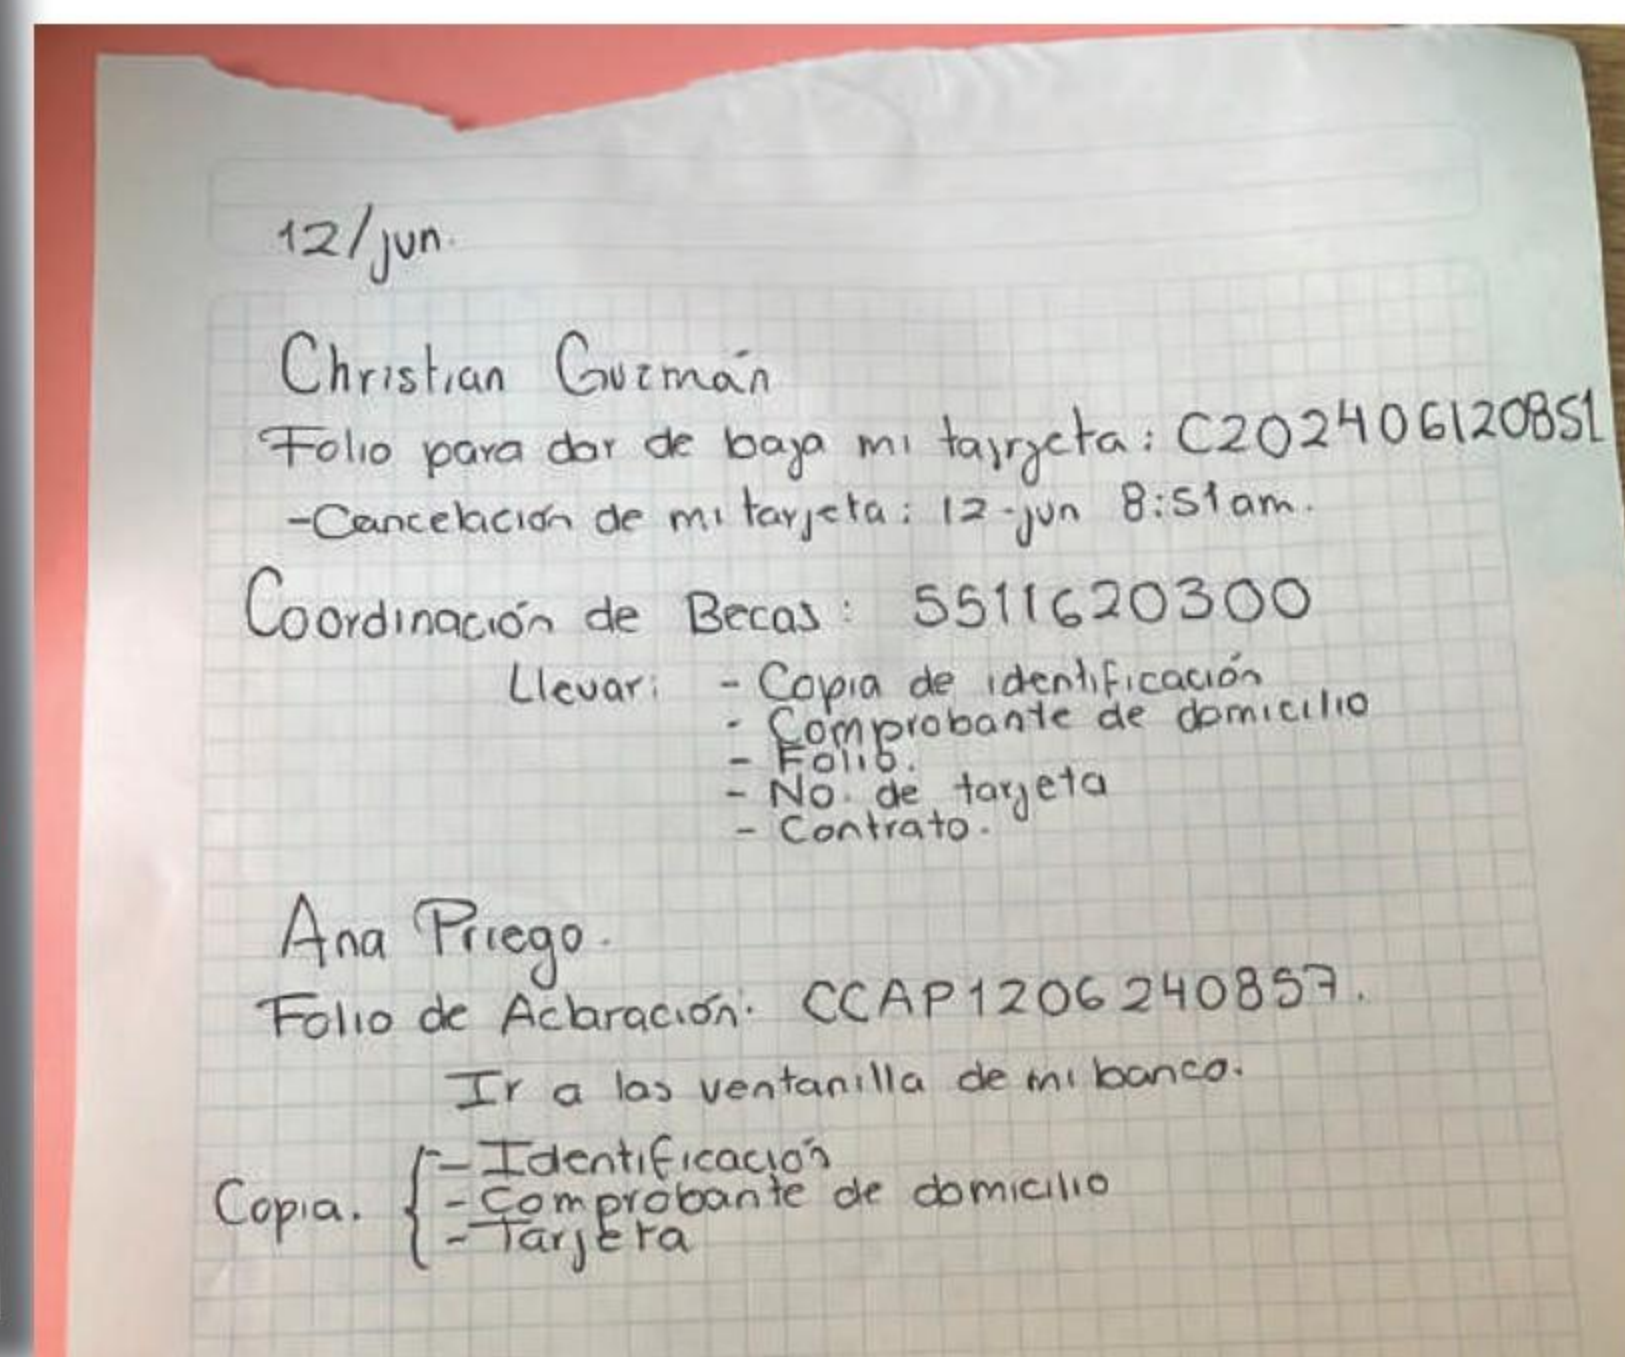 12/jun.
Christian Guzmán
Folio para dar de baja mi tajrjeta: C202406120851
-Cancelación de mi tarjeta: 12-jun 8:51am.
Coordinación de Becas: 5511620300
Llevar: - Copia de identificación
- Comprobante de domicilio
- Folio.
- No. de tarjeta
- Contrato.
Ana Priego.
Folio de Aclaración: CCAP1206240857.
Ir a las ventanilla de mi banco.
- Identificación
Copia. - Comprobante de domicilio
- Tarjeta